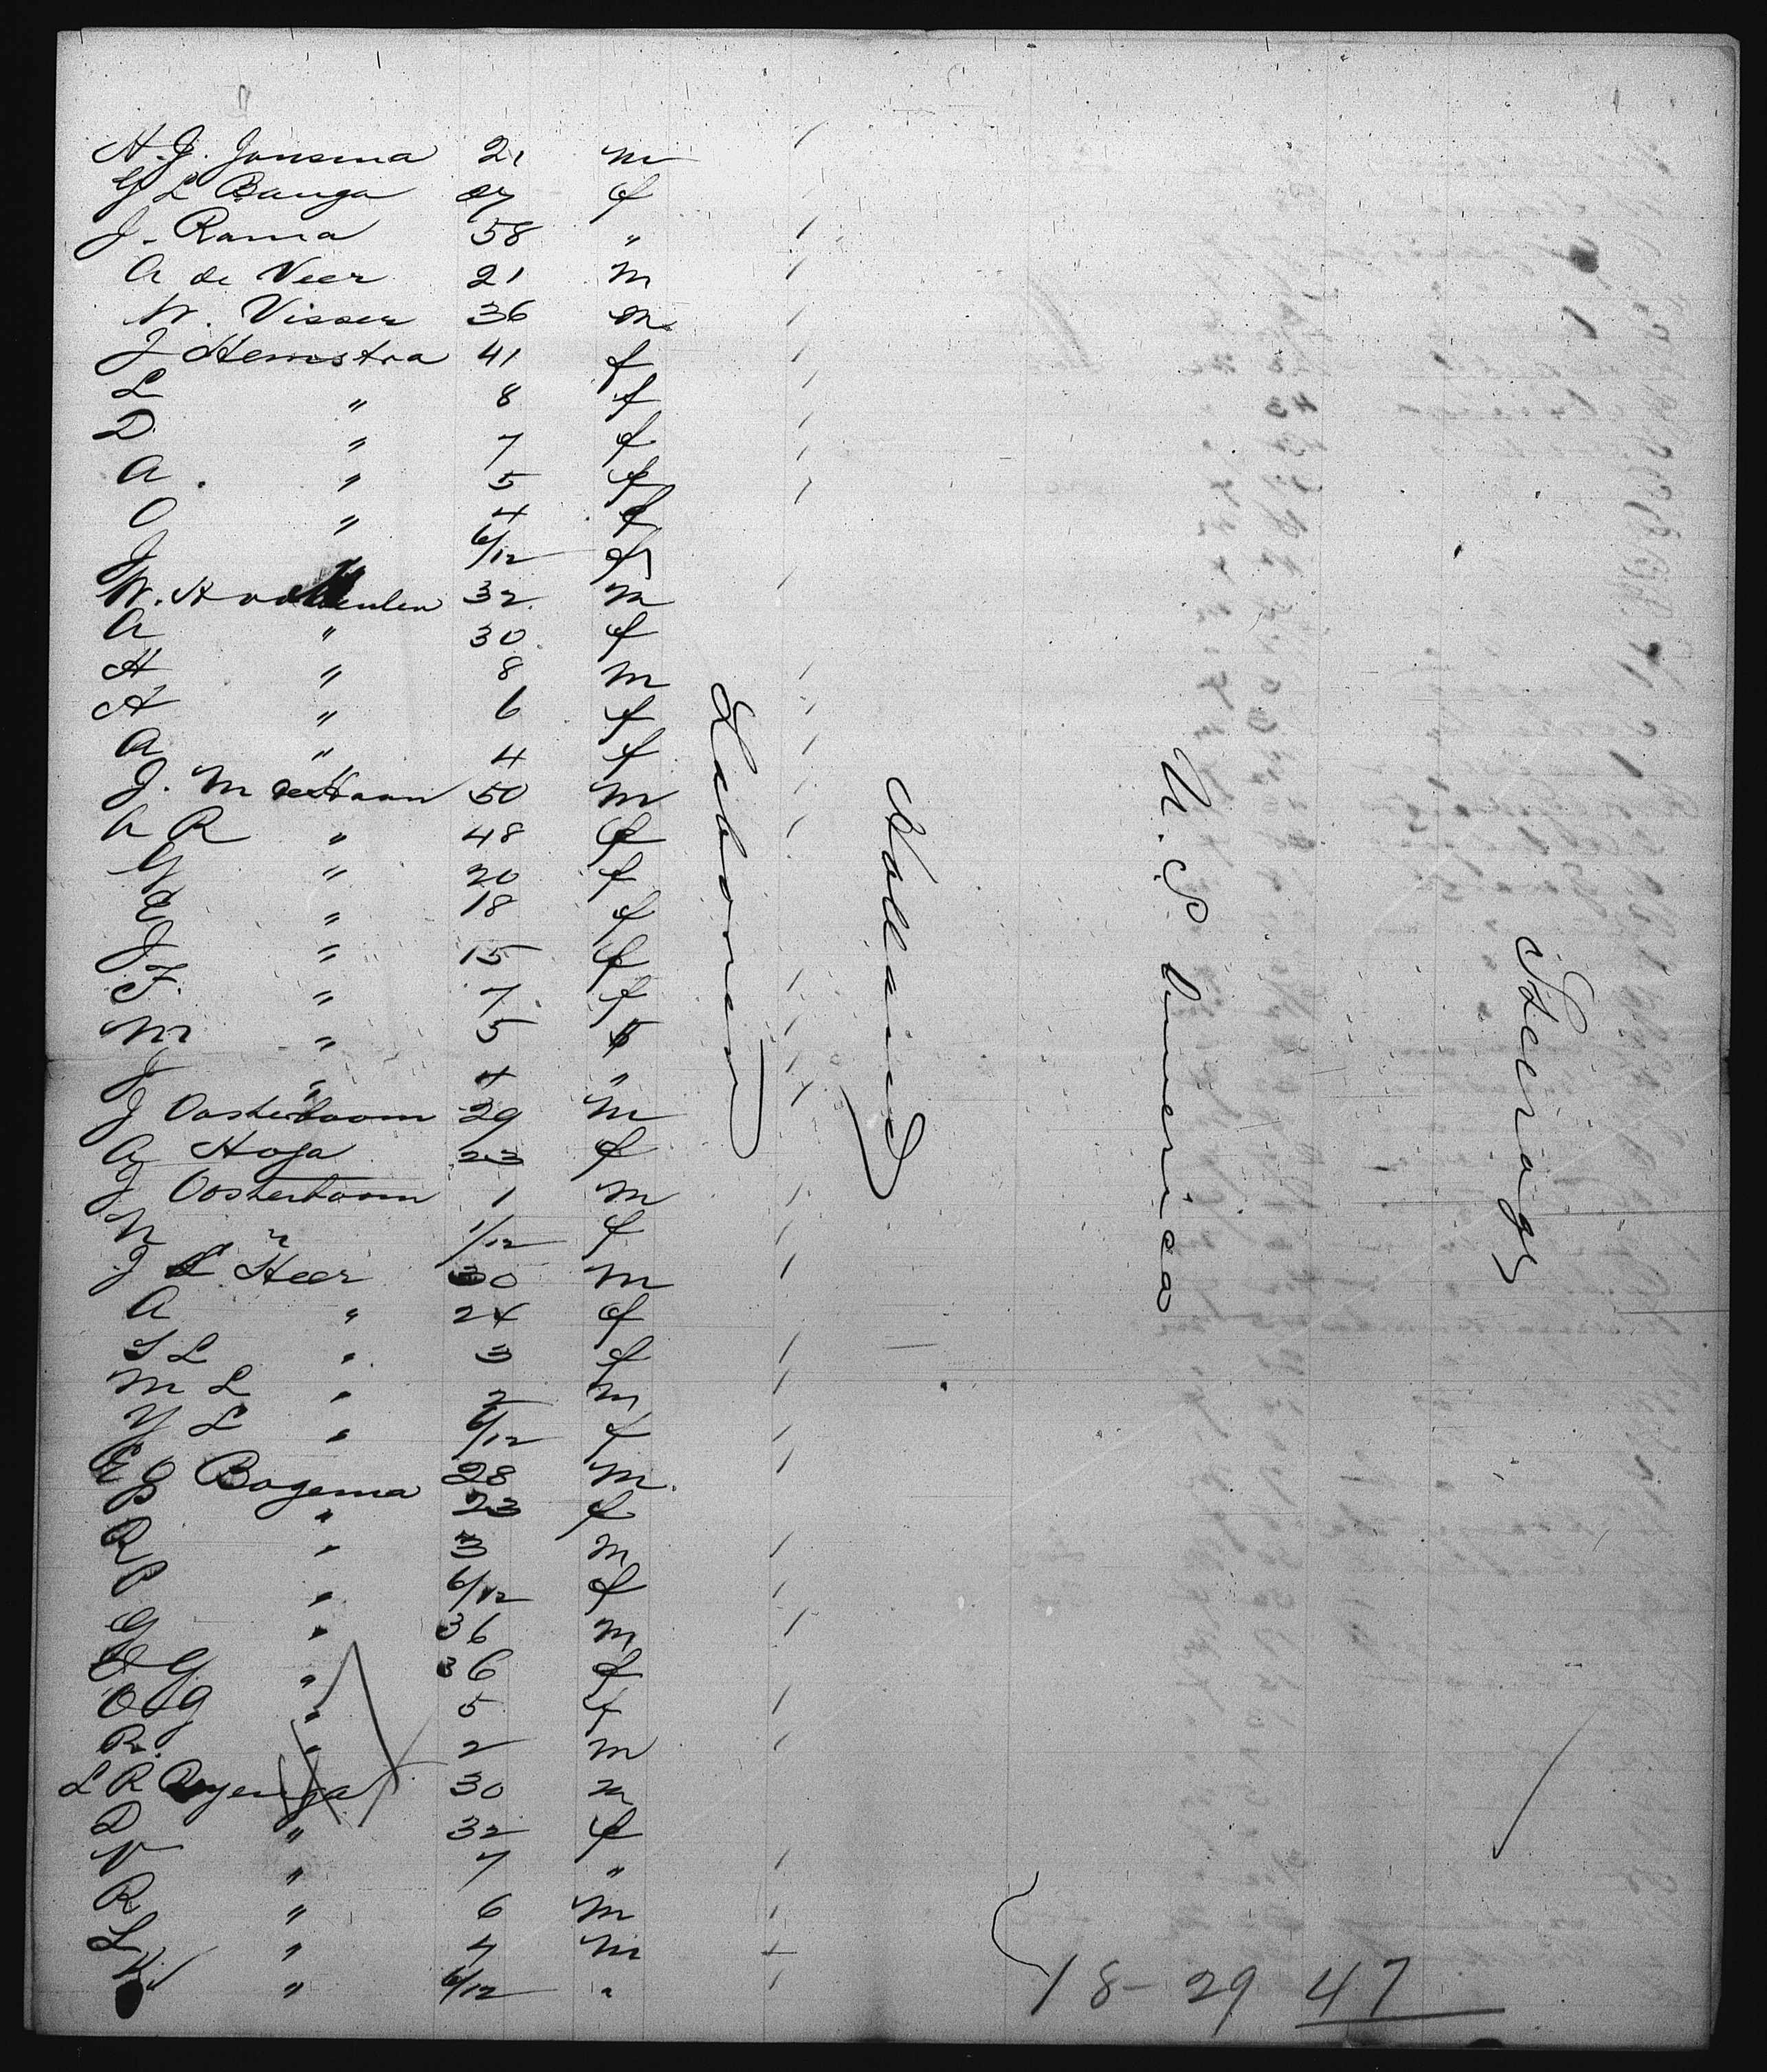 H. J. Jansma 21 m
G L Banga 27 f
J. Rama 58 "
A de Veer 21 m
W. Visser 36 m
J Hemstra 41 f
L " 8 f
D " 7 f
A. " 5 f
O " 4 f
J 6/12 f
W. 32 m
A " 30 f
H " 8 m
A " 6 f
A " 4 f
J. M de Haan 50 m
A R " 48 f
G " 20 f
E " 18 f
J " 15 f
F. " 7 f
M " 5
J " 4 "
J Oosterboom 29 m
A Hoga 23 f
J Oosterboom 1 m
N " 1/12 f
J L Heer 30 m
A " 24 f
S L " 3 f
M L " 2 m
Y L " 6/12 f
E G Bogema 28 m.
B " 23 f
R " 3 m
P " 6/12 f
G " 36 m
G " 36 f
O G " 5 f
R. " 2 m
L R 30 m
D " 32 f
N " 7 "
R " 6 m
L " 4 m
K " 6/12 "
Labourer
Holland
U. S. America
Steerage
18 - 29 47